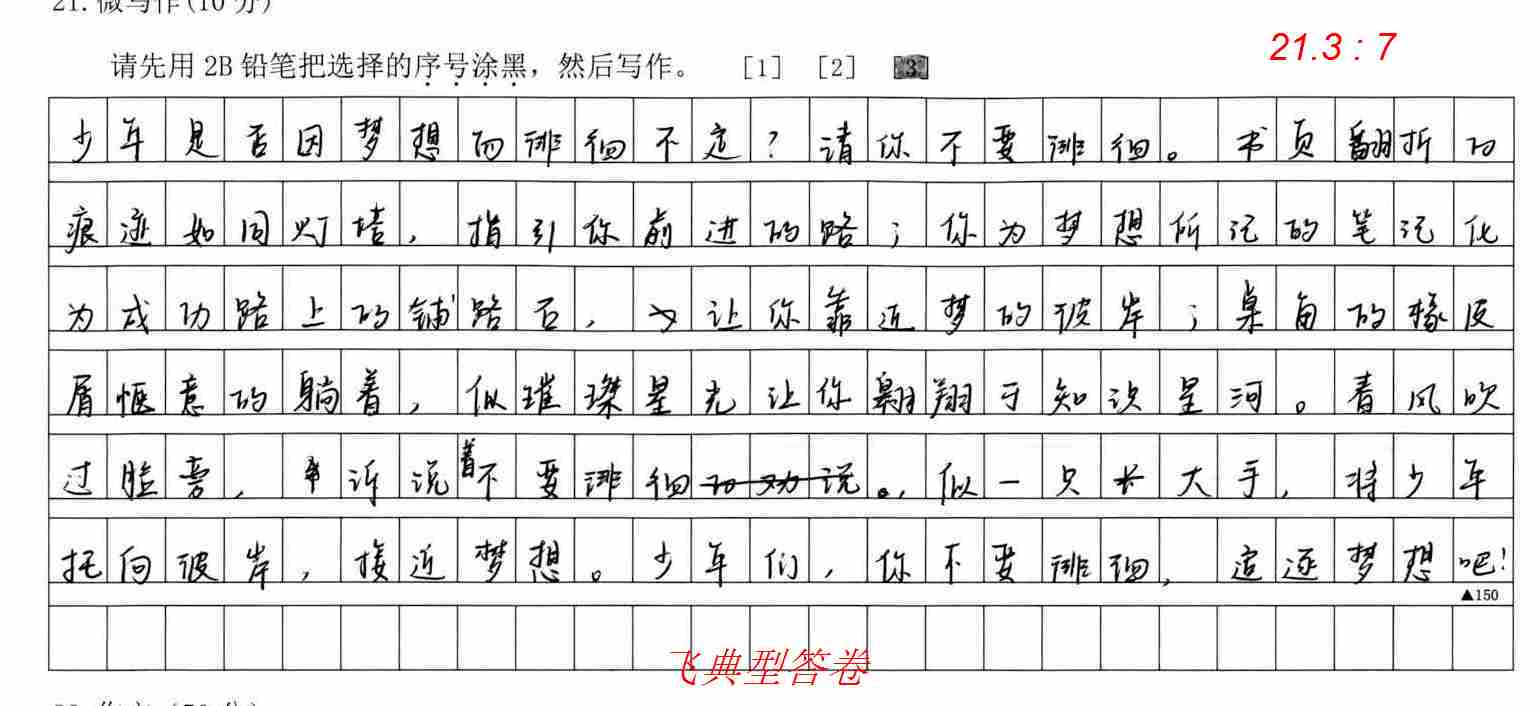 21. 微写作(10 分)
请先用 2B 铅笔把选择的序号涂黑，然后写作。 [1] [2] [3]
21.3 : 7
少年是否因梦想而徘徊不定？请你不要徘徊。书页翻折的
痕迹如同灯塔，指引你前进的路；你为梦想所记的笔记化
为成功路上的铺路石，让你靠近梦的彼岸；桌角的橡皮
屑惬意的躺着，似璀璨星光让你翱翔于知识星河。春风吹
过脸旁，诉说着不要徘徊。，似一只大手，将少年
托向彼岸，接近梦想。少年们，你不要徘徊，追逐梦想吧！
▲150
飞典型答卷